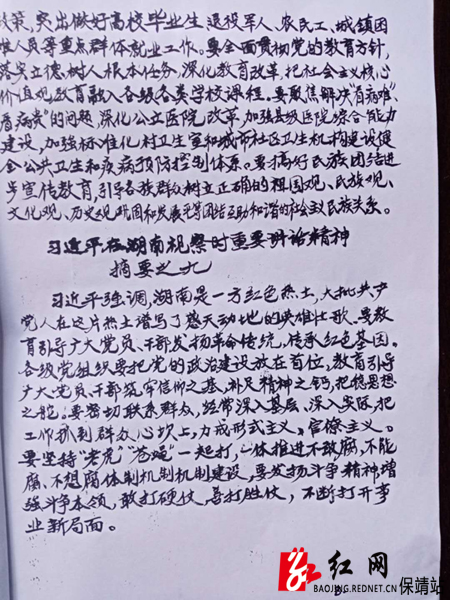 政策,突出做好高校毕业生、退役军人、农民工、城镇困
难人员等重点群体就业工作。要全面贯彻党的教育方针,
落实立德树人根本任务,深化教育改革,把社会主义核心
价值观教育融入各级各类学校课程。要聚焦解决"看病难、
看病贵"的问题,深化公立医院改革,加强县级医院综合能力
建设,加强标准化村卫生室和城市社区卫生机构建设健
全公共卫生和疾病预防控制体系。要搞好民族团结进
步宣传教育,引导各族群众树立正确的祖国观、民族观、
文化观、历史观,巩固和发展平等团结互助和谐的社会主义民族关系。
习近平在湖南视察时重要讲话精神
摘要之九
习近平强调,湖南是一方红色热土,大批共产
党人在这片热土谱写了感天动地的英雄壮歌。要教
育引导广大党员、干部发扬革命传统,传承红色基因。
各级党组织要把党的政治建设放在首位,教育引导
广大党员、干部筑牢信仰之基、补足精神之钙,把稳思想
之舵。要密切联系群众,经常深入基层、深入实际,把
工作抓到群众心坎上,力戒形式主义、官僚主义。
要坚持"老虎""苍蝇"一起打,一体推进不敢腐、不能
腐、不想腐体制机制机制建设,要发扬斗争精神增
强斗争本领,敢打硬仗、善打胜仗,不断打开事
业新局面。
红网
BAOJING.REDNET.CN 保靖站